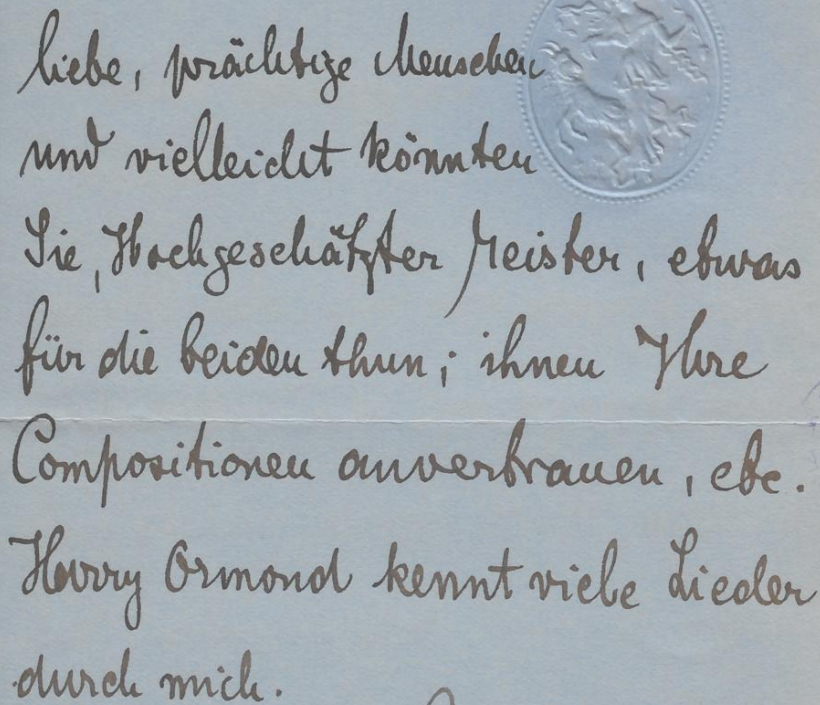 liebe, prächtige Menschen
und vielleicht könnten
Sie, Hochgeschätzter Meister, etwas
für die beiden thun; ihnen Ihre
Compositionen anvertrauen, etc.
Harry Ormond kennt viele Lieder
durch mich.